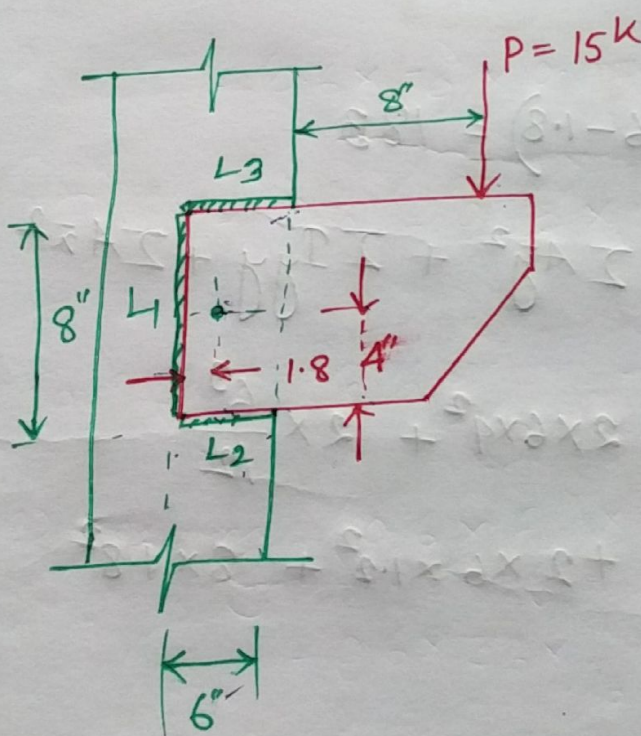 P = 15K
8"
L3
8"
L1
1.8
4"
L2
6"